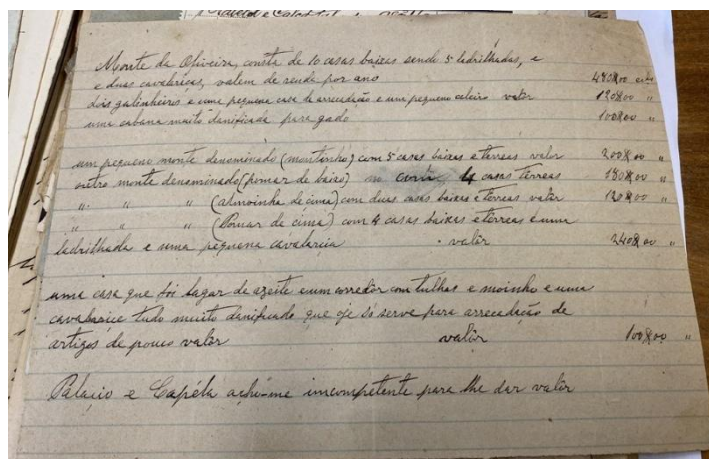 Monte da Oliveira, consta de 10 casas baixas sendo 5 ladrilhadas, e
e duas cavalariças, valem de renda por ano 480$00
dois galinheiros e uma pequena casa de arrecadação e um pequeno celeiro valor 120$00 "
uma cabana muito danificada para gado 100$00 "
um pequeno monte denominado (montinho) com 5 casas baixas e térreas valor 200$00 "
outro monte denominado (pomar de baixo) 4 casas térreas 180$00 "
" " " (almoinha de cima) com duas casas baixas e térreas valor 120$00 "
" " " (Pomar de cima) com 4 casas baixas e térreas e uma
ladrilhada e uma pequena cavalarcia valôr 240$00 "
uma casa que foi lagar de azeite e um corredor com tulhas e moinho e uma
cavalarice tudo muito danificado que oje só serve para arrecadação de
artigos de pouco valor valôr 100$00 "
Palacio e Capéla acho-me imcompetente para lhe dar valôr